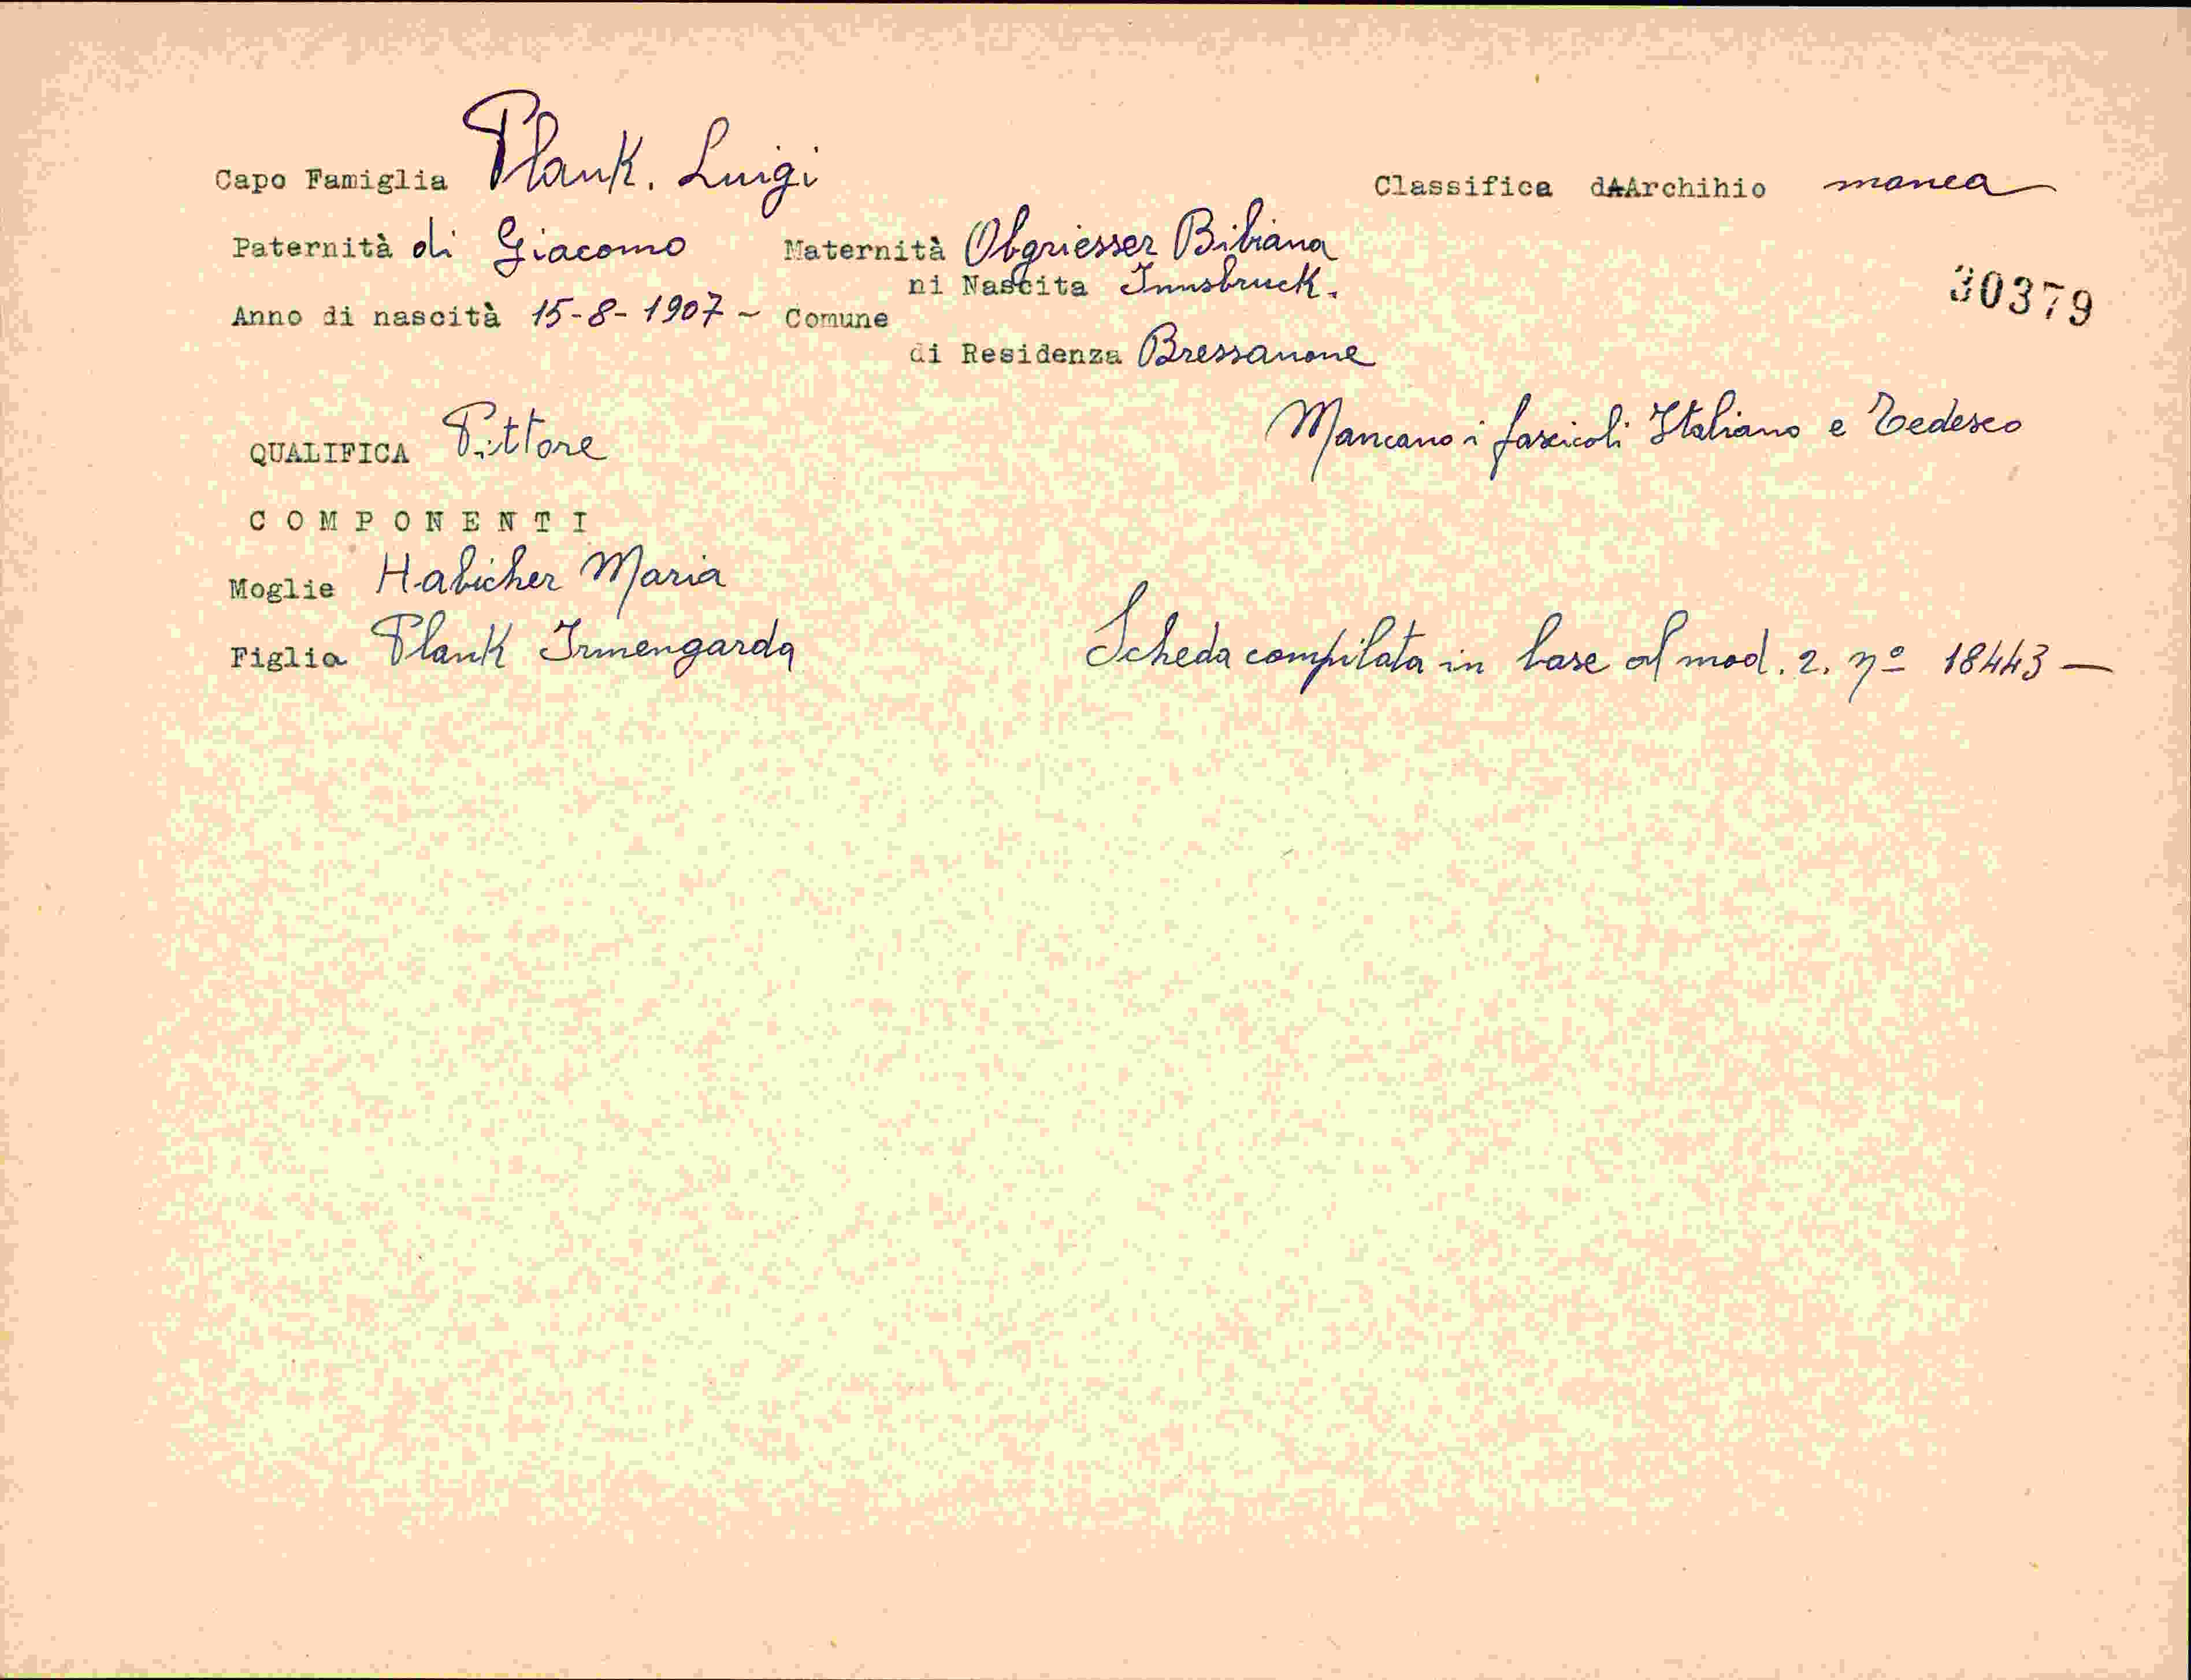 Capo Famiglia Plank. Luigi
Classifica dAArchihio manca
Paternità di Giacomo Maternità Obgriesser Bibiana
ni Nascita Innsbruck.
30379
Anno di nascità 15-8-1907 - Comune
di Residenza Bressanone
QUALIFICA Pittore
Mancano i fascicoli Italiano e Tedesco
COMPONENTI
Moglie Habicher Maria
Figlia Plank Irmengarda
Scheda compilata in base al mod. 2. nº 18443 —